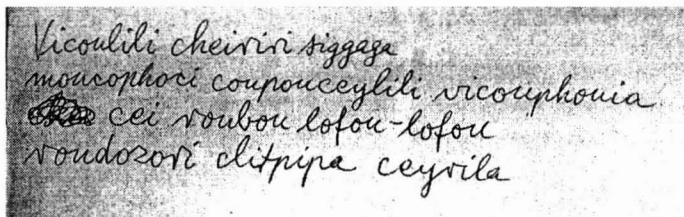 Vicoulili cheiriri siggaga
moucophoci coupouceylili vicouphonia
cei roubou lofou-lofou
roudozori clitpipa ceyrila